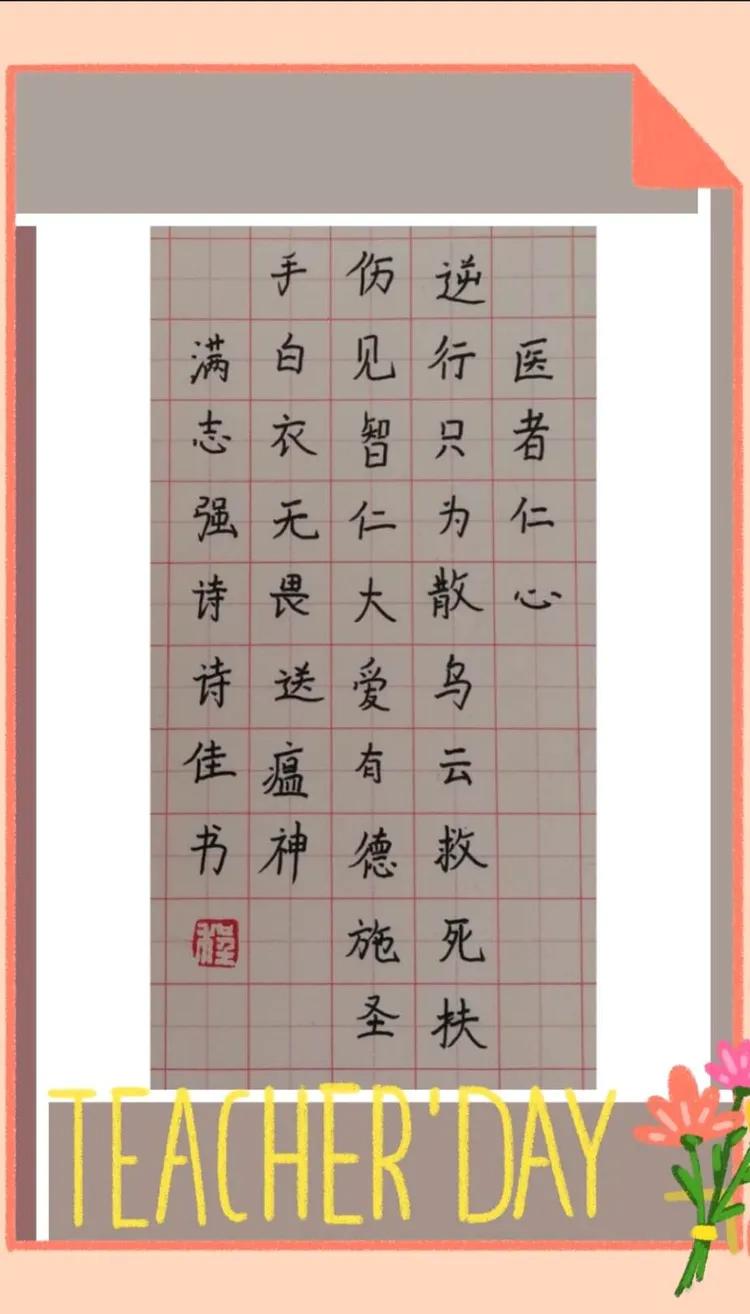 医者仁心
逆行只为散乌云救死扶
伤见智仁大爱有德施圣
手白衣无畏送瘟神
满志强诗诗佳书
程
TEACHER'DAY